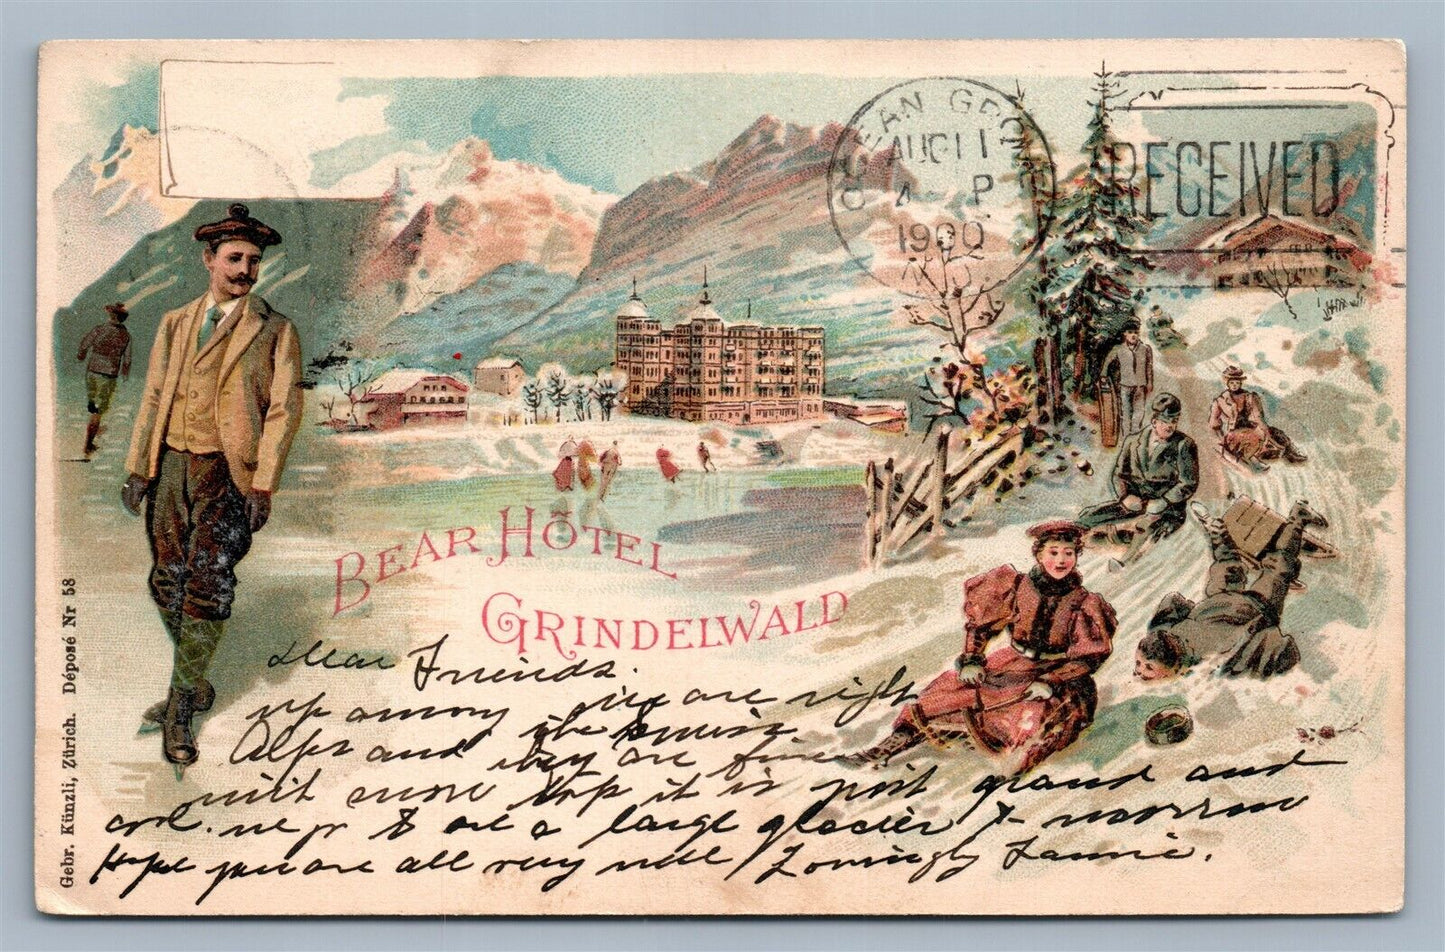 OCEAN GROVE
AUG 11
4 P
1900
RECEIVED
BEAR HÔTEL
GRINDELWALD
Gebr. Künzli, Zürich. Déposé Nr 58
Dear Friends.
up among we are right
Alps and the Swiss
they are fine
with snow top it is just grand and
cool. we go to see a large glacier to-morrow
Hope you are all very well Lovingly Fannie.